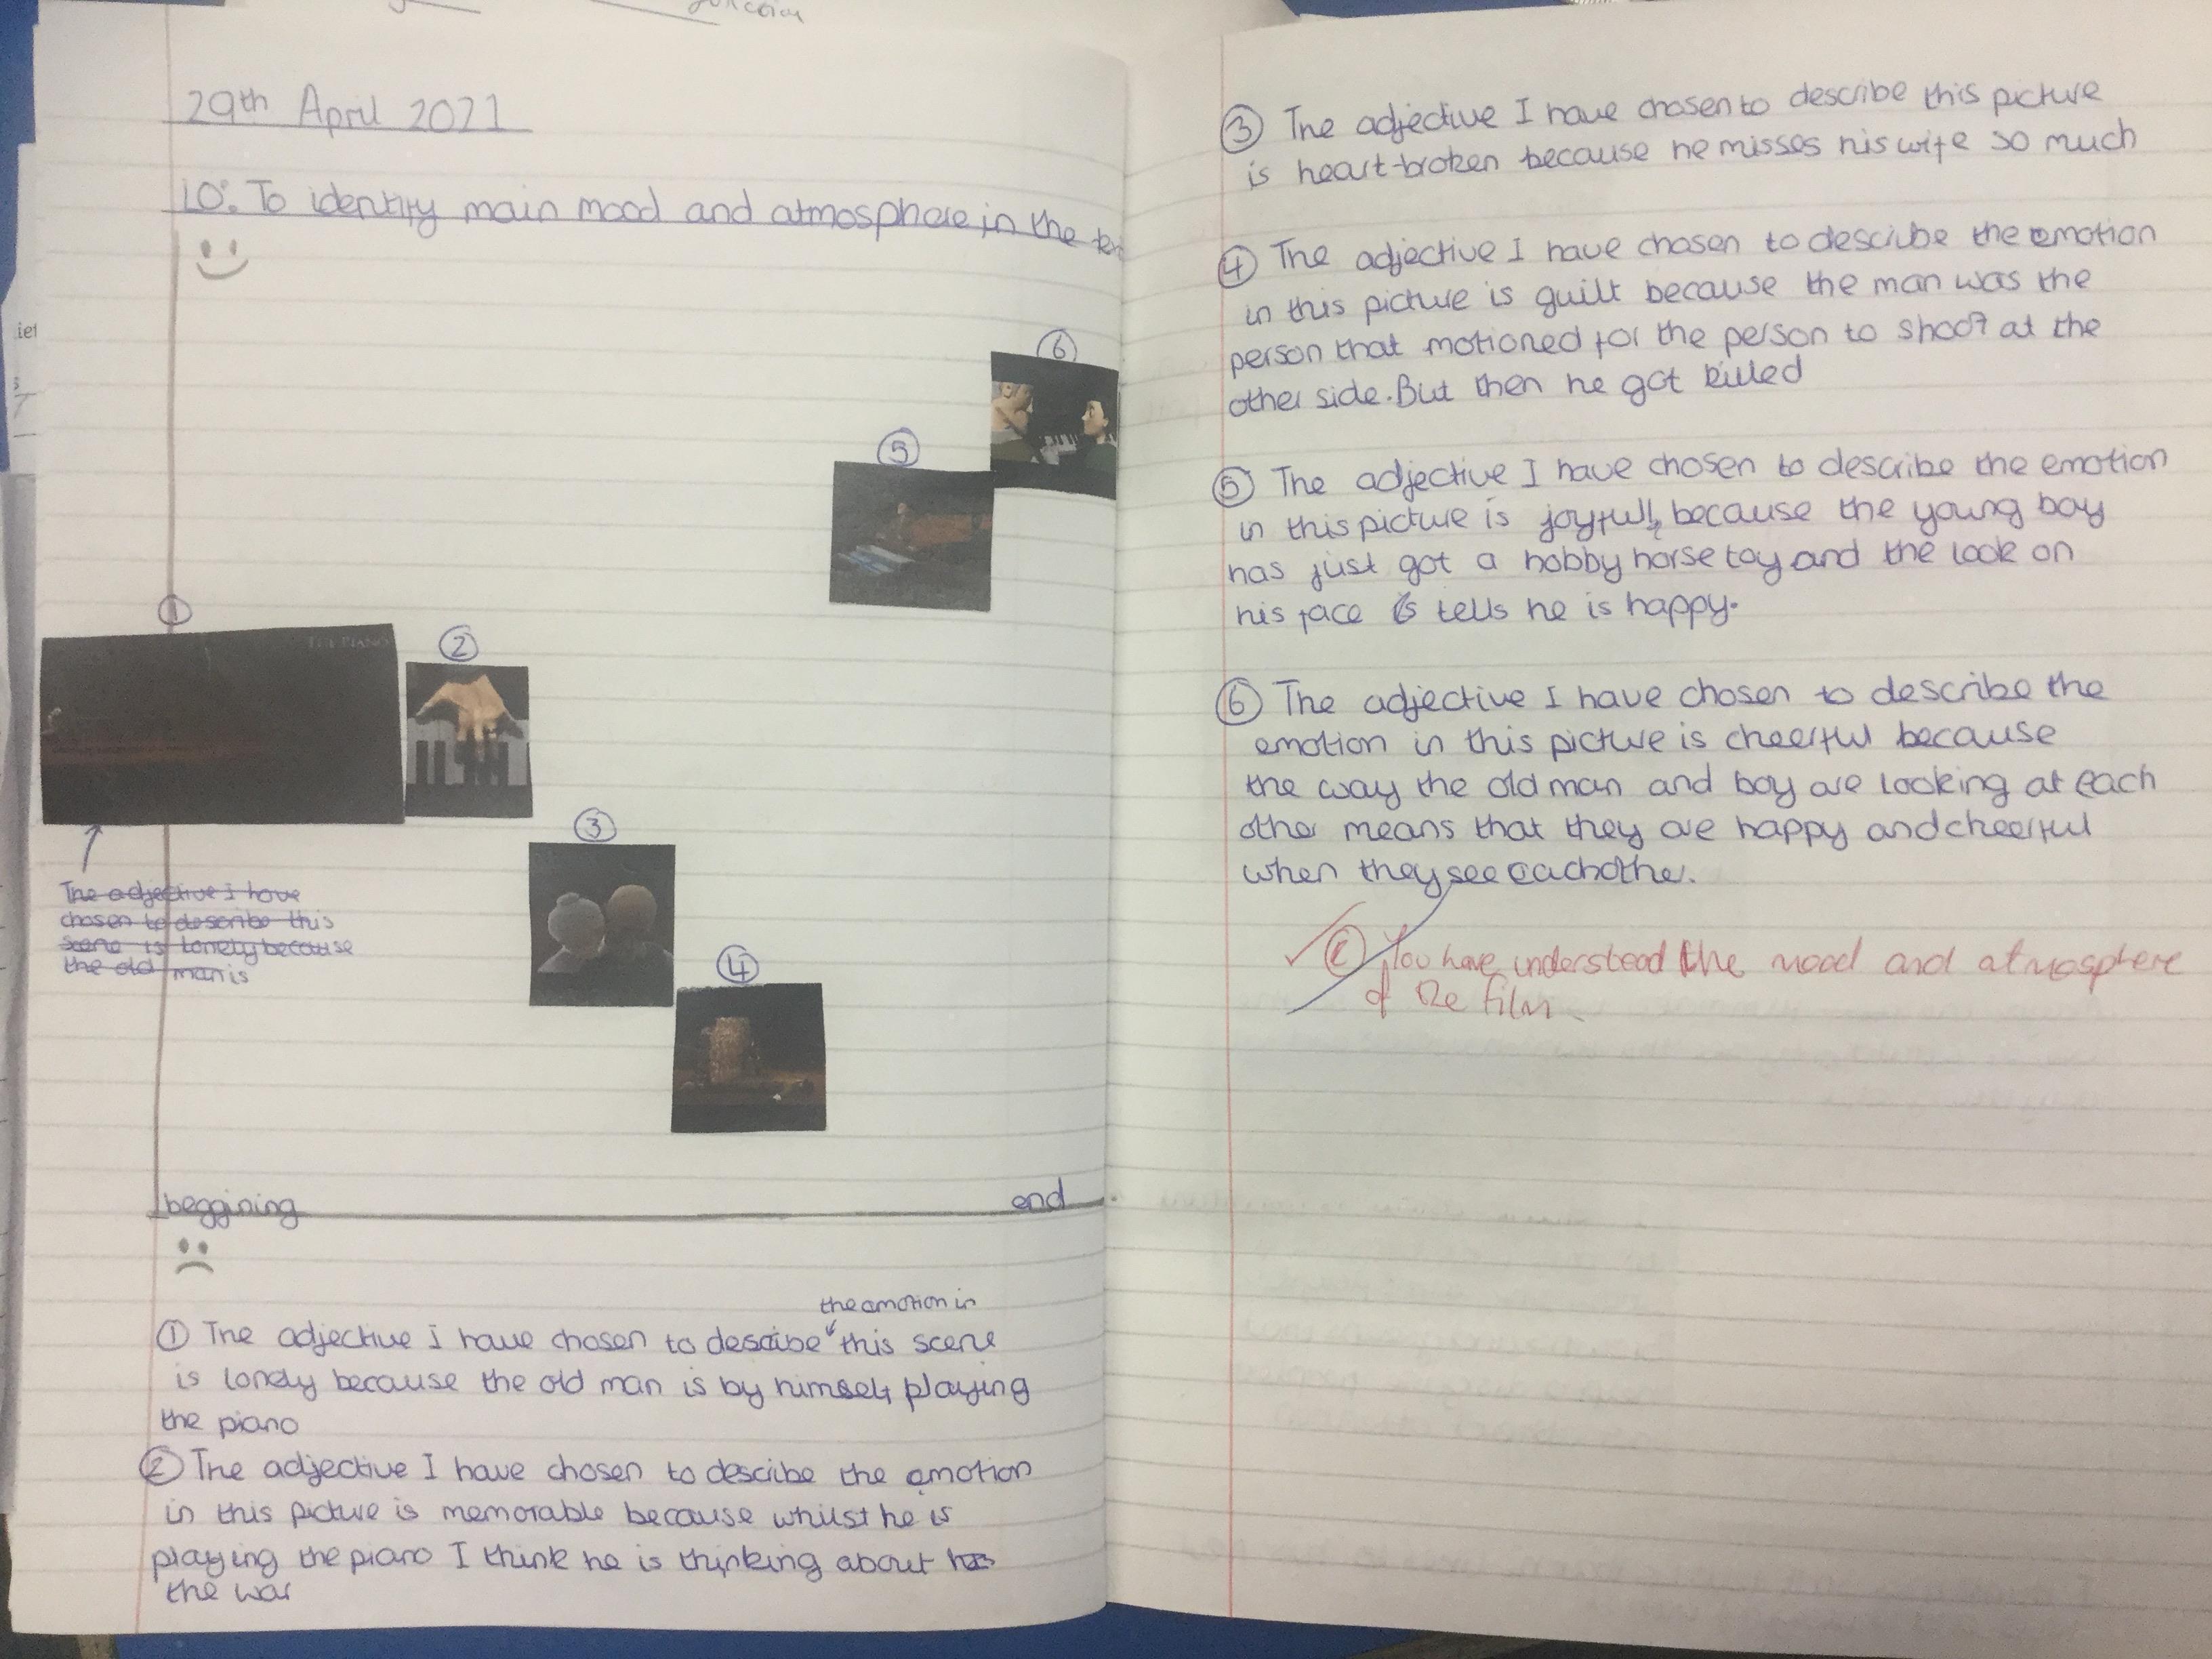 29th April 2021
LO: To identify main mood and atmosphere in the
6
5
1
THE PIANO
2
3
4
The adjective I have
chosen to describe this
scene is lonely because
the old man is
beggining end
the emotion in
① The adjective i have chosen to describe this scene
is lonely because the old man is by himself playing
the piano
② The adjective I have chosen to describe the emotion
in this picture is memorable because whilst he is
playing the piano I think he is thinking about
the war
③ The adjective I have chosen to describe this picture
is heart-broken because he misses his wife so much
④ The adjective I have chosen to describe the emotion
in this picture is guilt because the man was the
person that motioned for the person to shoot at the
other side. But then he got killed
⑤ The adjective I have chosen to describe the emotion
in this picture is joyfull, because the young boy
has just got a hobby horse toy and the look on
his face tells he is happy.
⑥ The adjective I have chosen to describe the
emotion in this picture is cheerful because
the way the old man and boy are looking at each
other means that they are happy and cheerful
when they see eachother.
You have understood the mood and atmosphere
of the film